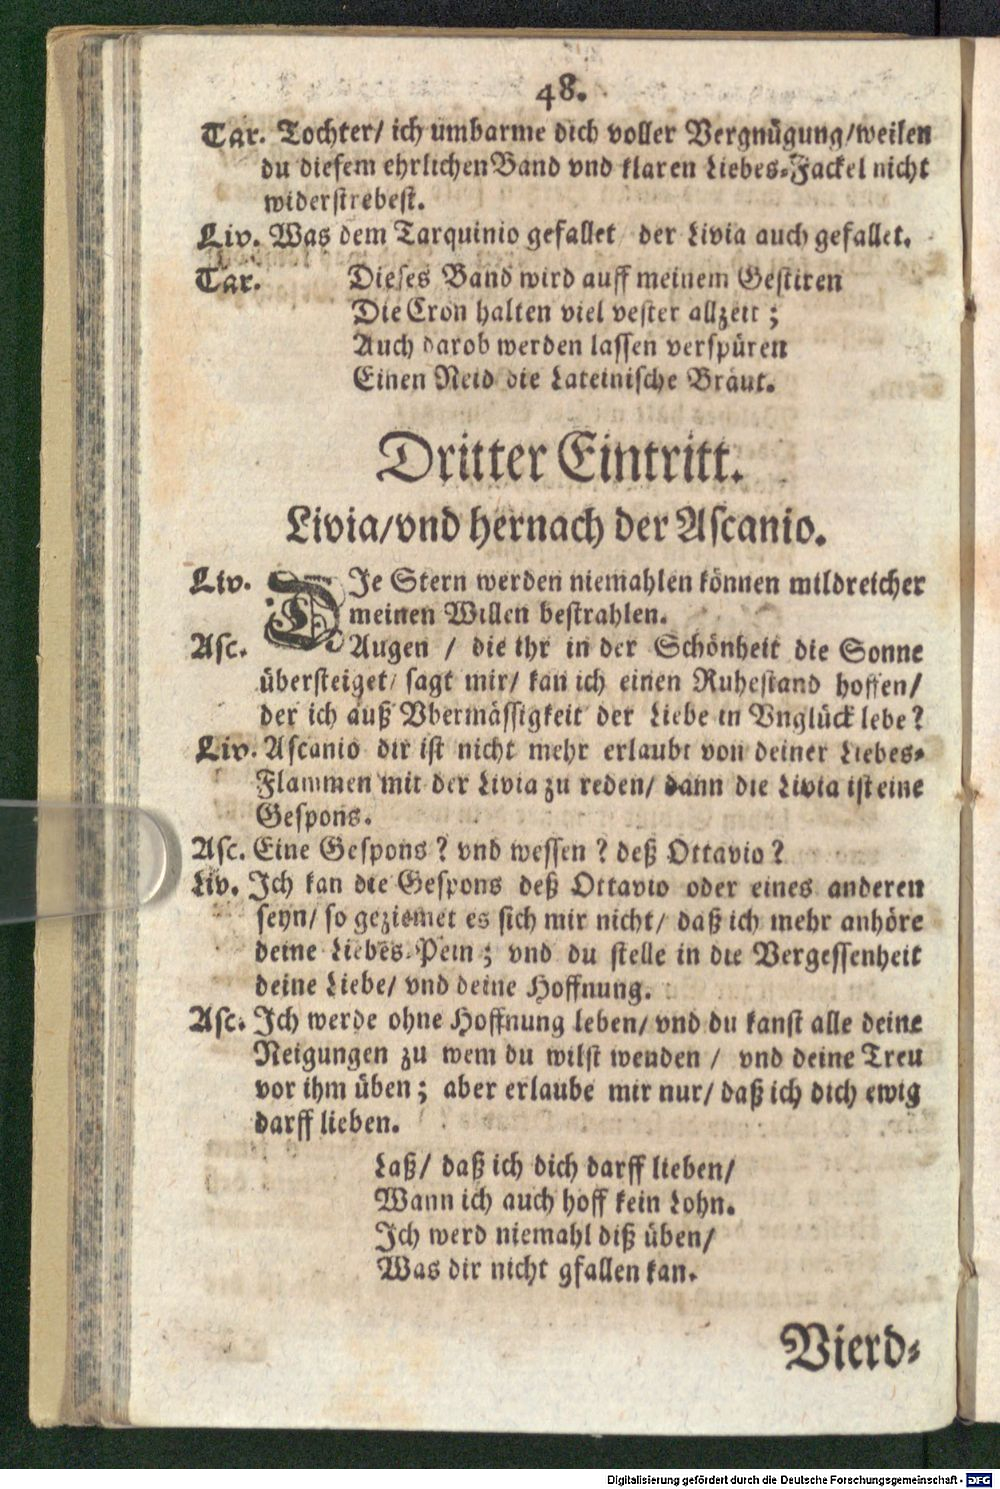 48.
Tar. Tochter/ ich umbarme dich voller Vergnügung/weilen
du diesem ehrlichen Band vnd klaren Liebes-Fackel nicht
widerstrebest.
Liv. Was dem Tarquinio gefallet/ der Livia auch gefallet.
Tar. Dieses Band wird auff meinem Gestiren
Die Cron halten viel vester allzeit ;
Auch darob werden lassen verspüren
Einen Neid die Lateinische Braut.
Dritter Eintritt.
Livia/vnd hernach der Ascanio.
Liv. DJe Stern werden niemahlen können mildreicher
meinen Willen bestrahlen.
Asc. Augen / die ihr in der Schönheit die Sonne
übersteiget/ sagt mir/ kan ich einen Ruhestand hoffen/
der ich auß Vbermässigkeit der Liebe in Vnglück lebe?
Liv. Ascanio dir ist nicht mehr erlaubt von deiner Liebes-
Flammen mit der Livia zu reden/ dann die Livia ist eine
Gespons.
Asc. Eine Gespons ? vnd wessen ? deß Ottavio ?
Liv. Jch kan die Gespons deß Ottavio oder eines anderen
seyn/ so geziemet es sich mir nicht/ daß ich mehr anhöre
deine Liebes-Pein ; vnd du stelle in die Vergessenheit
deine Liebe/ vnd deine Hoffnung.
Asc. Jch werde ohne Hoffnung leben/ vnd du kanst alle deine
Neigungen zu wem du wilst wenden / vnd deine Treu
vor ihm üben ; aber erlaube mir nur/ daß ich dich ewig
darff lieben.
Laß/ daß ich dich darff lieben/
Wann ich auch hoff kein Lohn.
Jch werd niemahl diß üben/
Was dir nicht gfallen kan.
Vierd-
Digitalisierung gefördert durch die Deutsche Forschungsgemeinschaft - DFG